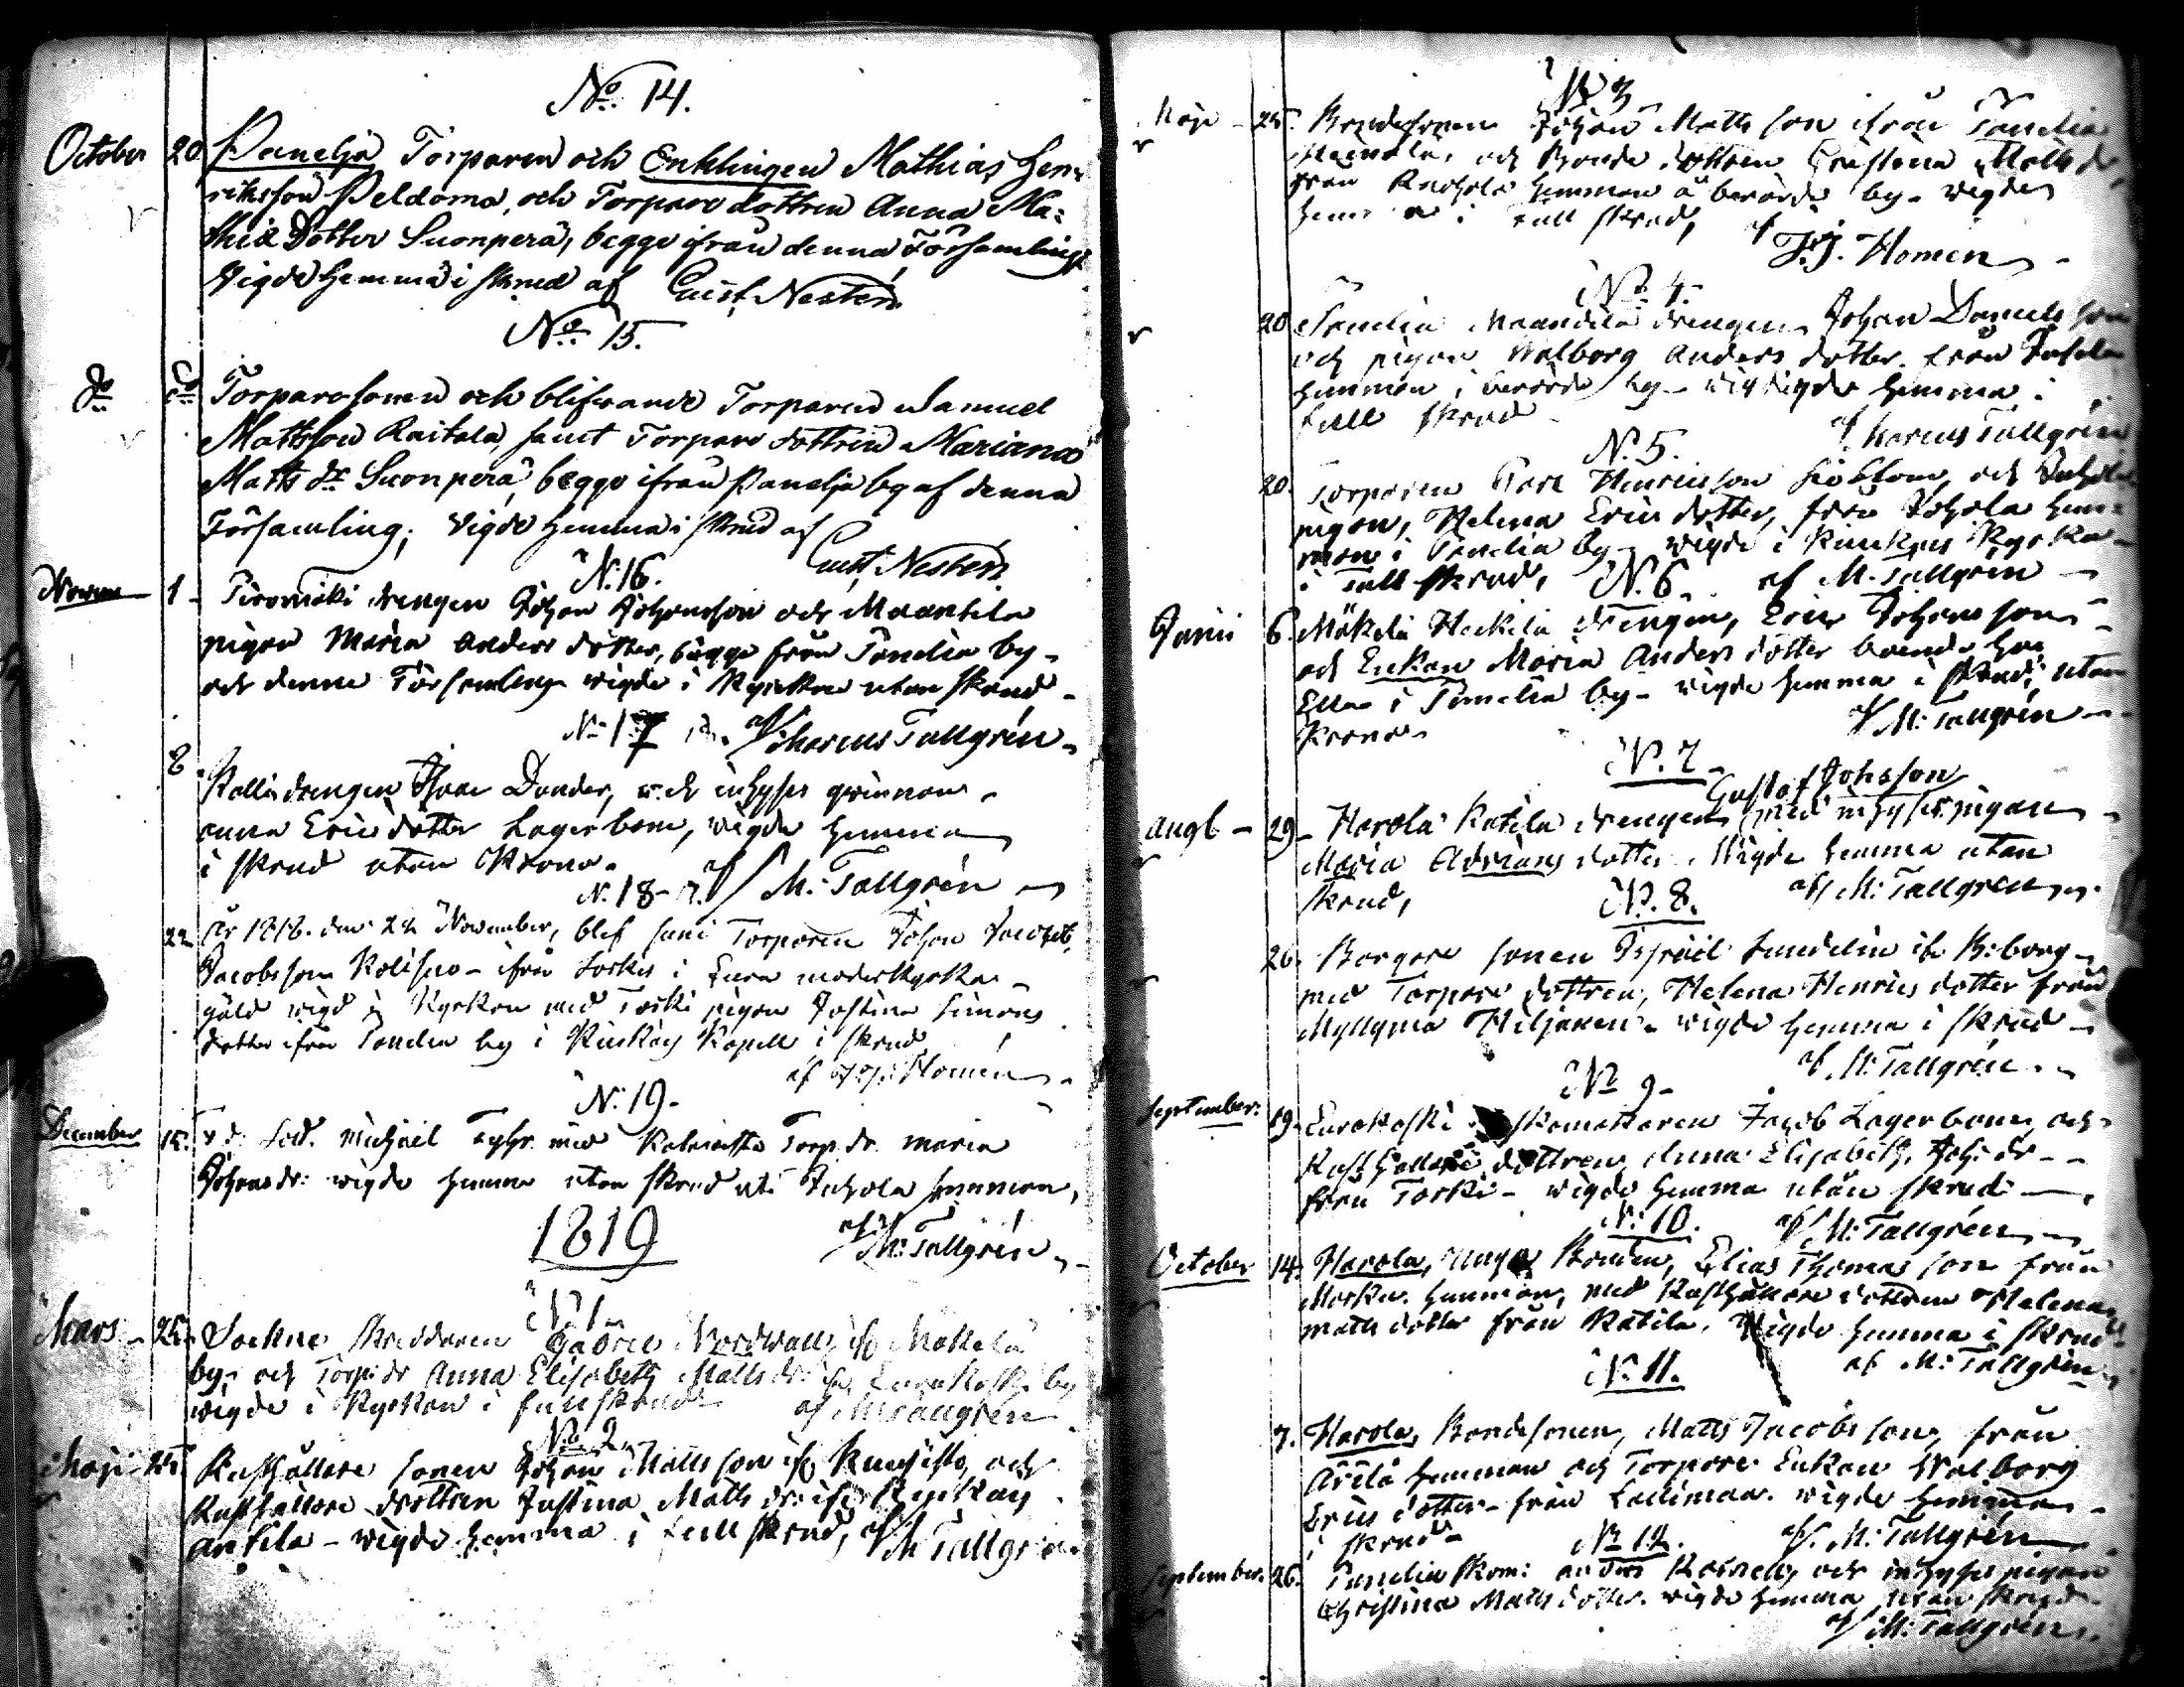 No. 14.
October 20 Panelja Torparen och Enklingen Mathias Hen-
riksson Peldoma, och Torpare dottren Anna Ma-
thiæ Dotter Suonperä, begge ifrån denna Församling
Vigde Hemma i skrud af Gust. Nestén
No. 15.
do do Torparesonen och blifvande Torparen Samuel
Mattsson Raitala, samt Torpare dottren Mariana
Matts dr Suonperä, begge ifrån Panelja by af denna
Församling; Vigde hemma i skrud af
Gust. Nestén
N. 16.
1 drengen Johan Johansson och Maantila
pigan Maria Anders dotter, bägge från Panelia by
och denna Församling wigde i Kyrckan utan skrud
af Marcus Tallgrén
No 17
8. drengen Donder, och inhyses qvinnan
Anna Erics dotter Lagerbom, wigde hemma
i skrud utan Krona.
af M. Tallgrén
N. 18
22 År 1818. den 22 November, blef Torparen Johan
Jacobsson ifrån i Eura moderkyrka
gäld wigd i Kyrckan med pigan Justina Simons
dotter ifrån Panelia by i Kiukais Kapell i skrud
af Homén
N. 19
December 15. Michael med Torp. dr. Maria
Johans dr. wigde hemma utan skrud uti Juhola hemman,
af M. Tallgrén
1819
N. 1
Mars 25. Sockne skreddaren Gabriel Nordwall
by och Torp. dr Anna Elisabeth Matts dr. by
wigde i Kyrckan i full skrud af M. Tallgrén
No. 2.
Maji 25. Rusthållare sonen Johan Mattsson och
Rusthållare dottren Justina Matts dr.
Antila - wigde hemma i full skrud, af M. Tallgrén
No 3
Maji 25. Bondesonen Johan Mattsson ifrån Panelia
och Bonde dottren Christina Matts dr
från hemman å berörde by. wigde
hemma i full skrud, af
Homén
No. 4.
20 Panelia Maantila drengen Johan Daniels son
och pigan Walborg Anders dotter från
hemman i berörde by wigde hemma i
full skrud af Marcus Tallgrén
N. 5.
20. Torparen Henricsson och
pigan, Helena Erics dotter, från Juhola hem-
man i Panelia by wigde i Kiukais Kyrka
i full skrud, af M. Tallgrén
N. 6.
Junii 6. Mäkelä Heikilä drengen, Eric Johansson
och Enkan Maria Anders dotter boende hos
Ella i Panelia by - wigde hemma i skrud, utan
Krona
af M. Tallgrén
N. 7
Gustaf Johsson
Augt 29 Harola Katila drengen med inhyses pigan
Maria Adrians dotter. Wigde hemma utan
skrud, af M. Tallgrén
N. 8.
26. Borgare sonen Israel Sundelin ifr. B:borg
med Torpare dottren, Helena Henrics dotter från
Myllymaa wigde hemma i skrud
af M. Tallgrén
No 9
September 19. Eurakoski skomakaren Jacob Lagerbom och
Rusthållare dottren Anna Elisabeth Joh. dr
från Torki - wigde hemma utan skrud
af M. Tallgrén
N. 10.
October 14. Harola, unga Bonden, Elias Thomas son från
hemman, med Rusthållare dottren Helena
Matts dotter från Katila. Wigde hemma i skrud
af M. Tallgrén
N. 11.
7. Harola, Bondesonen, Matts Jacobsson, från
Arela hemman och Torpare Enkan Walborg
Erics dotter från wigde hemma
i skrud af M. Tallgrén
No 12.
September. 26. Panelia skom: Anders och inhyses pigan
Christina Matts dotter. wigde hemma utan skrud.
af M. Tallgrén